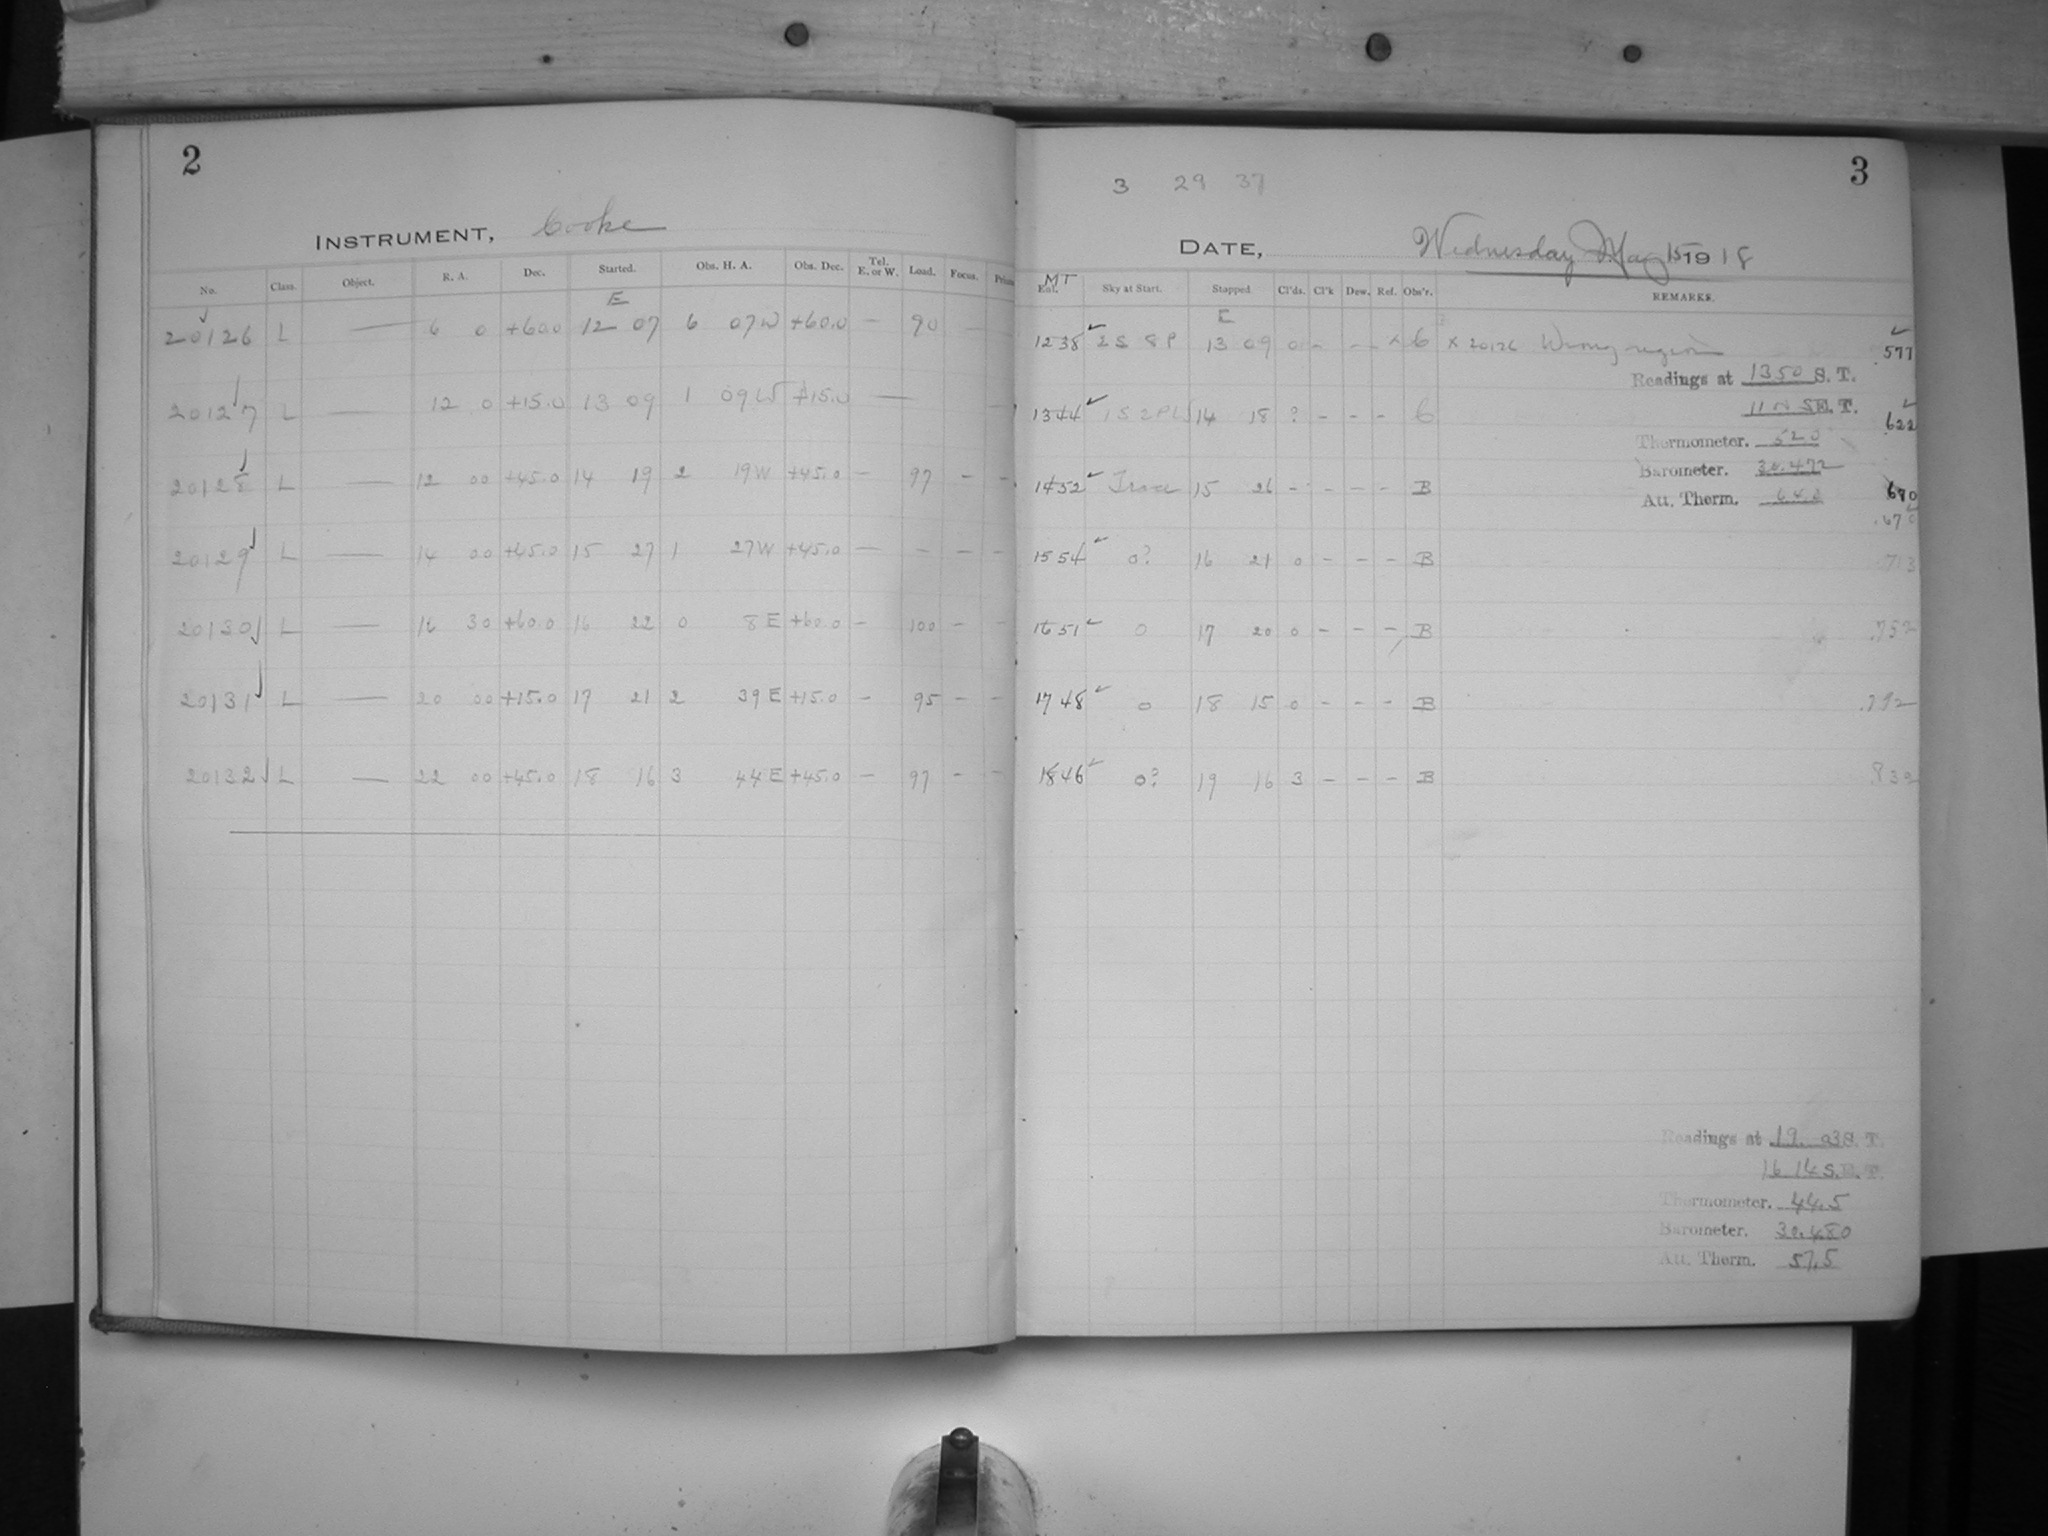 2
INSTRUMENT, Cooke
No. Class. Object. R. A. Dec. Started. Obs. H. A. Obs. Dec. Tel. E. or W. Load. Focus.
E
20126 L — 6 0 +60.0 12 07 6 07W +60.0 — 90 —
20127 L — 12 0 +15.0 13 09 1 09W +15.0 —
20128 L — 12 00 +45.0 14 19 2 19W +45.0 — 97 — —
20129 L — 14 00 +45.0 15 27 1 27W +45.0 — — — —
20130 L — 16 30 +60.0 16 22 0 8E +60.0 — 100 — —
20131 L — 20 00 +15.0 17 21 2 39E +15.0 — 95 — —
20132 L — 22 00 +45.0 18 16 3 44E +45.0 — 97 — —
3
3 29 37
DATE, Wednesday May 15 1918
MT
Sky at Start. Stopped Cl'ds. Cl'k Dew. Ref. Obs'r. REMARKS.
E
1238 2S 8P 13 09 0 - - x 6 x 20126 Wrong region .577
Readings at 1350 S. T.
E. T.
1344 1S 2P 14 18 ? - - - 6 .622
Thermometer. 52.0
Barometer. 30.472
1452 15 26 - - - - B 670
Att. Therm.
.670
1554 0? 16 21 0 - - - B .713
1651 0 17 20 0 - - - B .752
1748 0 18 15 0 - - - B .792
1846 0? 19 16 3 - - - B .832
Readings at 19. 03 S. T.
16 14 S.E. T.
Thermometer. 44.5
Barometer. 30.480
Att. Therm. 57.5